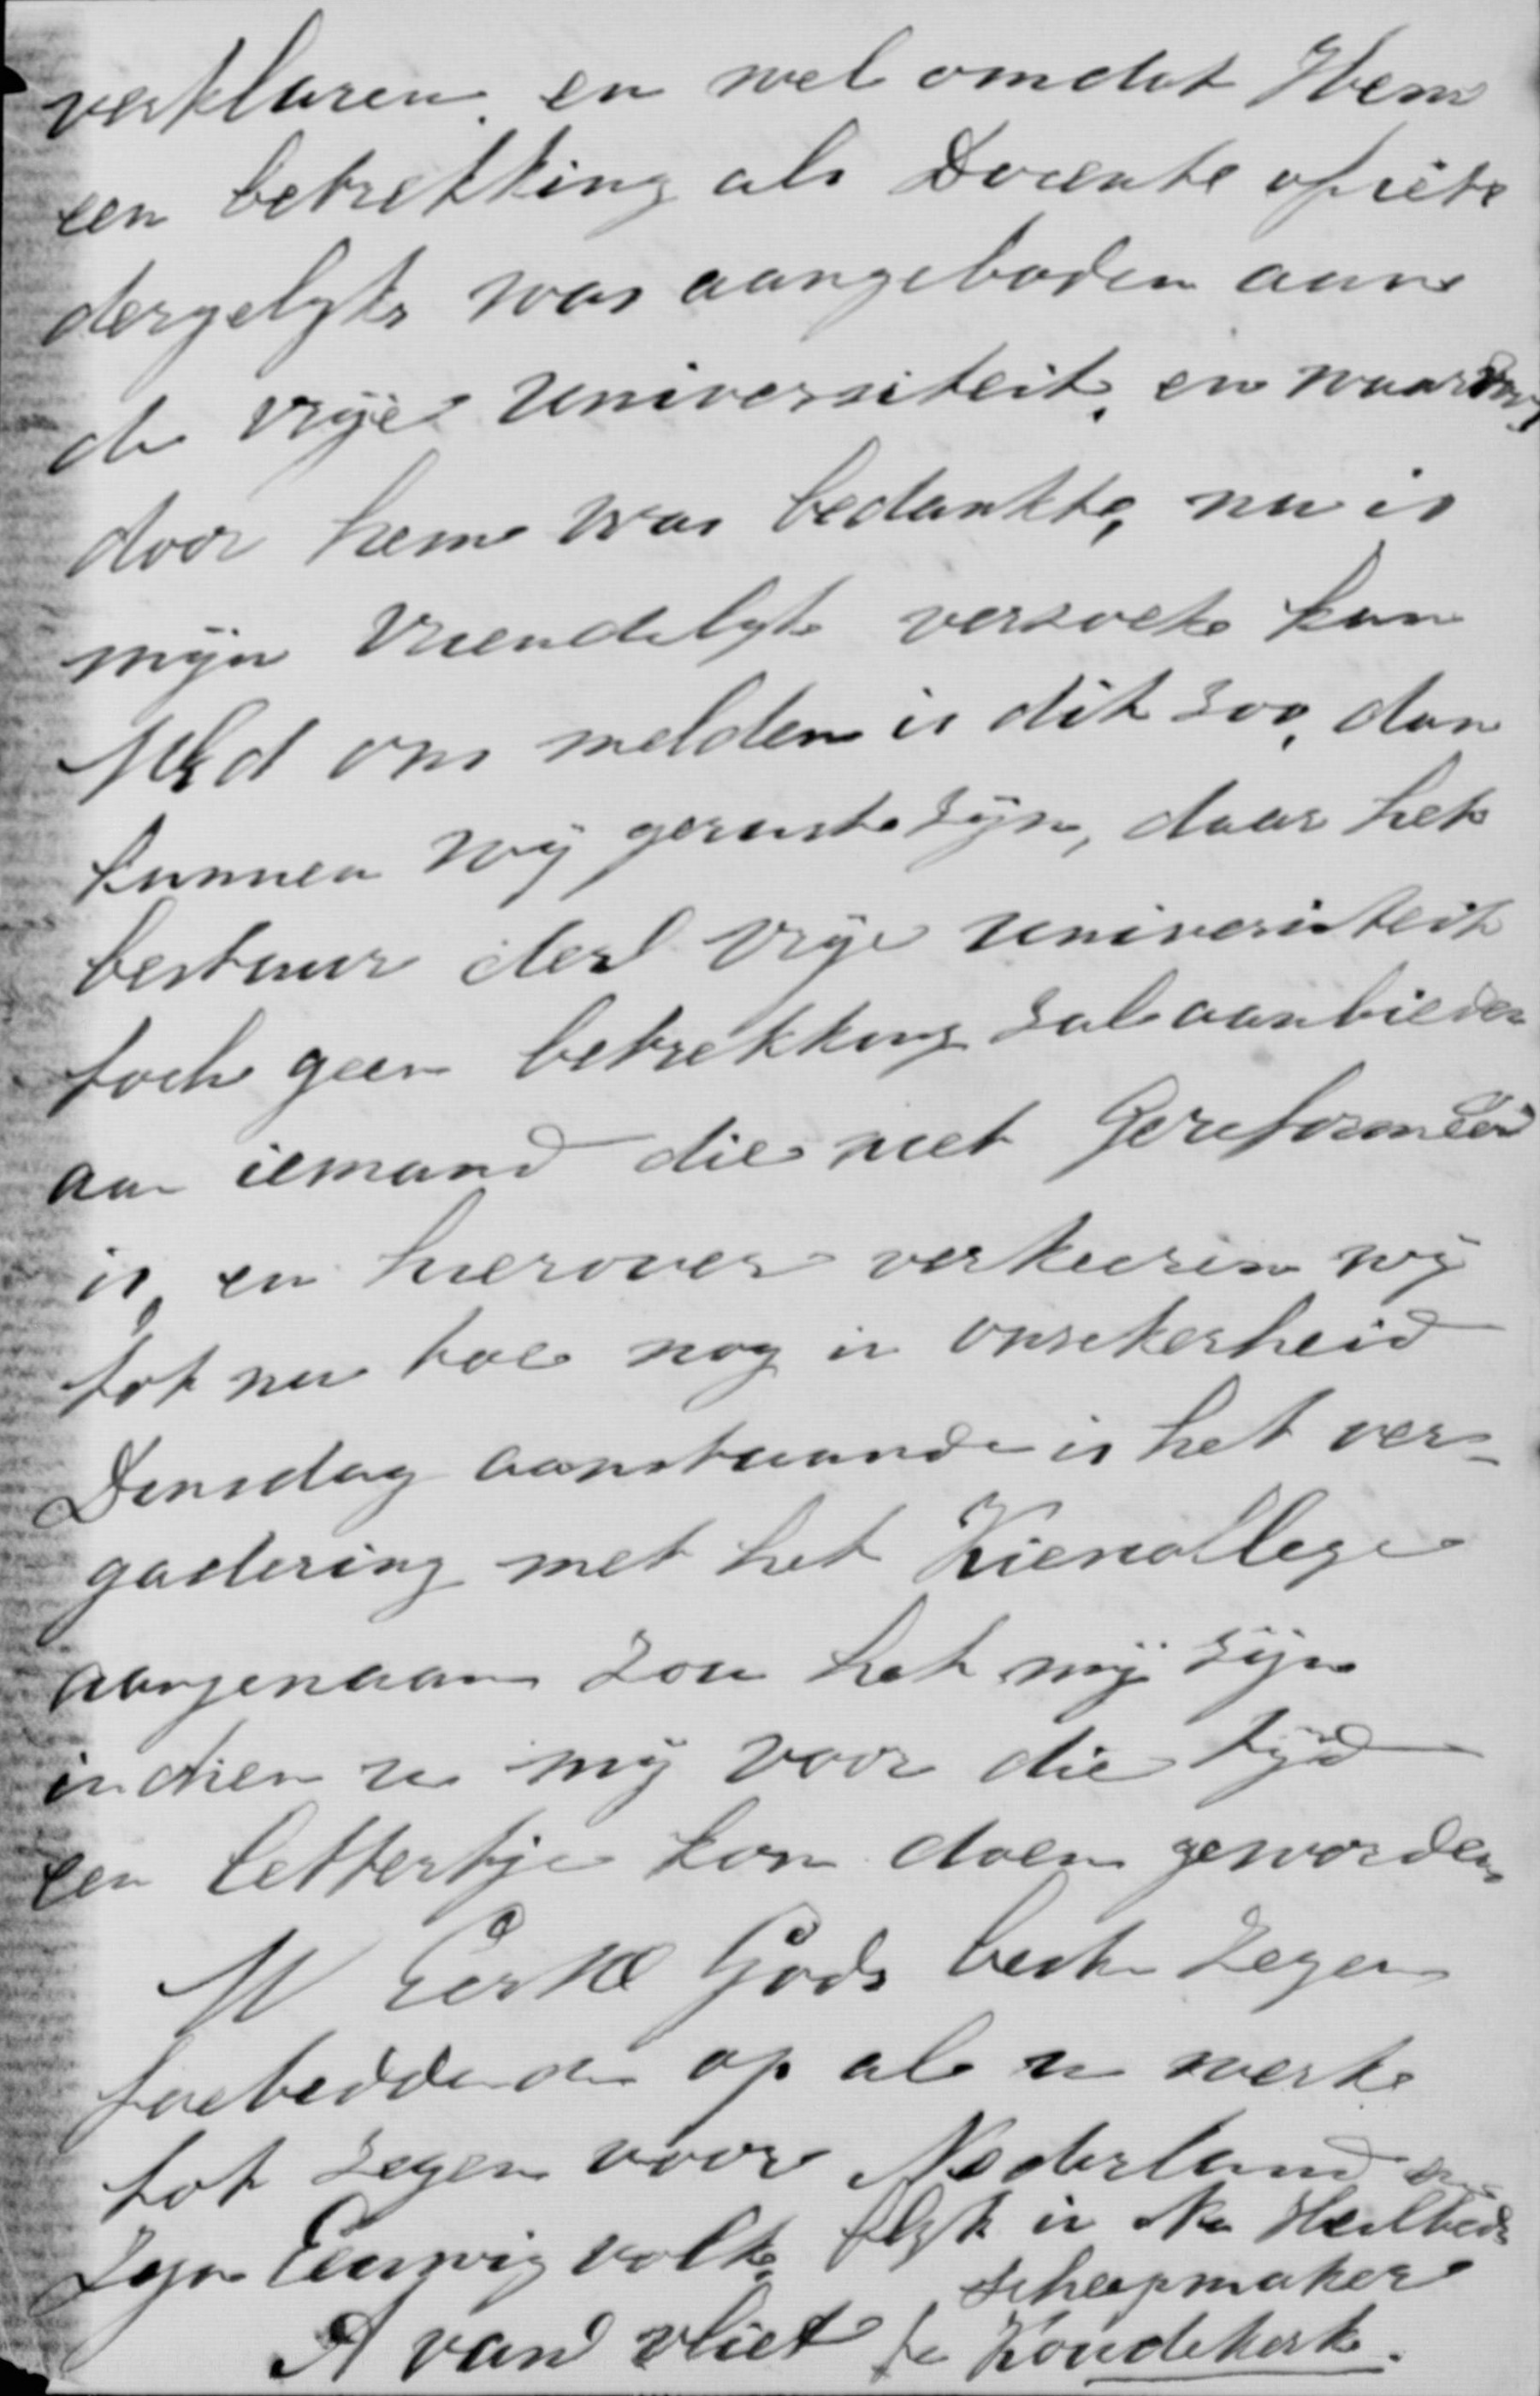 verklaren, en wel omdat Hem
een betrekking als Docente of iets
dergelyks was aangeboden aan
de vrije Universiteit, en waarvoor
door hem was bedankt, nu is
mijn vriendelyk versoek kan
UEd ons melden is dit zoo, dan
kunnen wij gerust zijn, daar het
bestuur der vrije universiteit
toch geen betrekking zal aanbieden
aan iemand die niet Gereformeerd
is, en hierover verkeeren wij
tot nu toe nog in onsekerheid
Dinsdag aanstaande is het ver-
gadering met het Kiescollege
aangenaam zou het mij zijn
indien u mij voor die tijd
een lettertje kon doen geworden
Gods beste Zegen
toebiddende op al u werk
tot zegen voor Nederland en
Zijn Eeuwig volk, blijk ik Uw Heilbede
A van vliet scheepmaker
te Koudekerk.